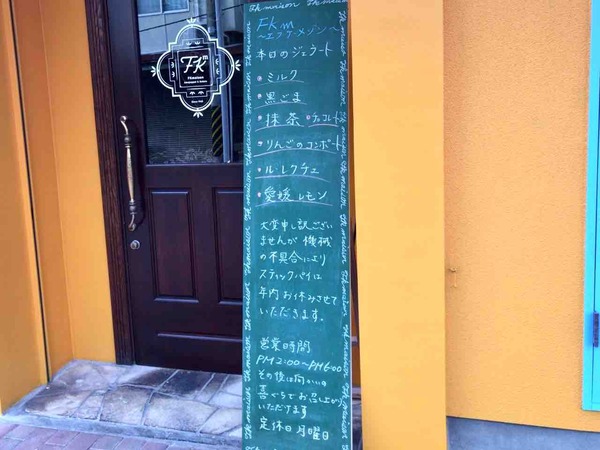 FKm
Fkmaison
FKm
~エフケ・メゾン~
本日のジェラート
・ミルク
・黒ごま
・抹茶 ・チョコレート
・りんごのコンポート
・ル・レクチェ
・愛媛レモン
大変申し訳ござい
ませんが 機械
の不具合により
スティックパイは
年内お休みさせて
いただきます。
営業時間
PM2:00~PM6:00
その後は向かいの
喜ぐらでお召し上がり
いただけます
定休日 月曜日